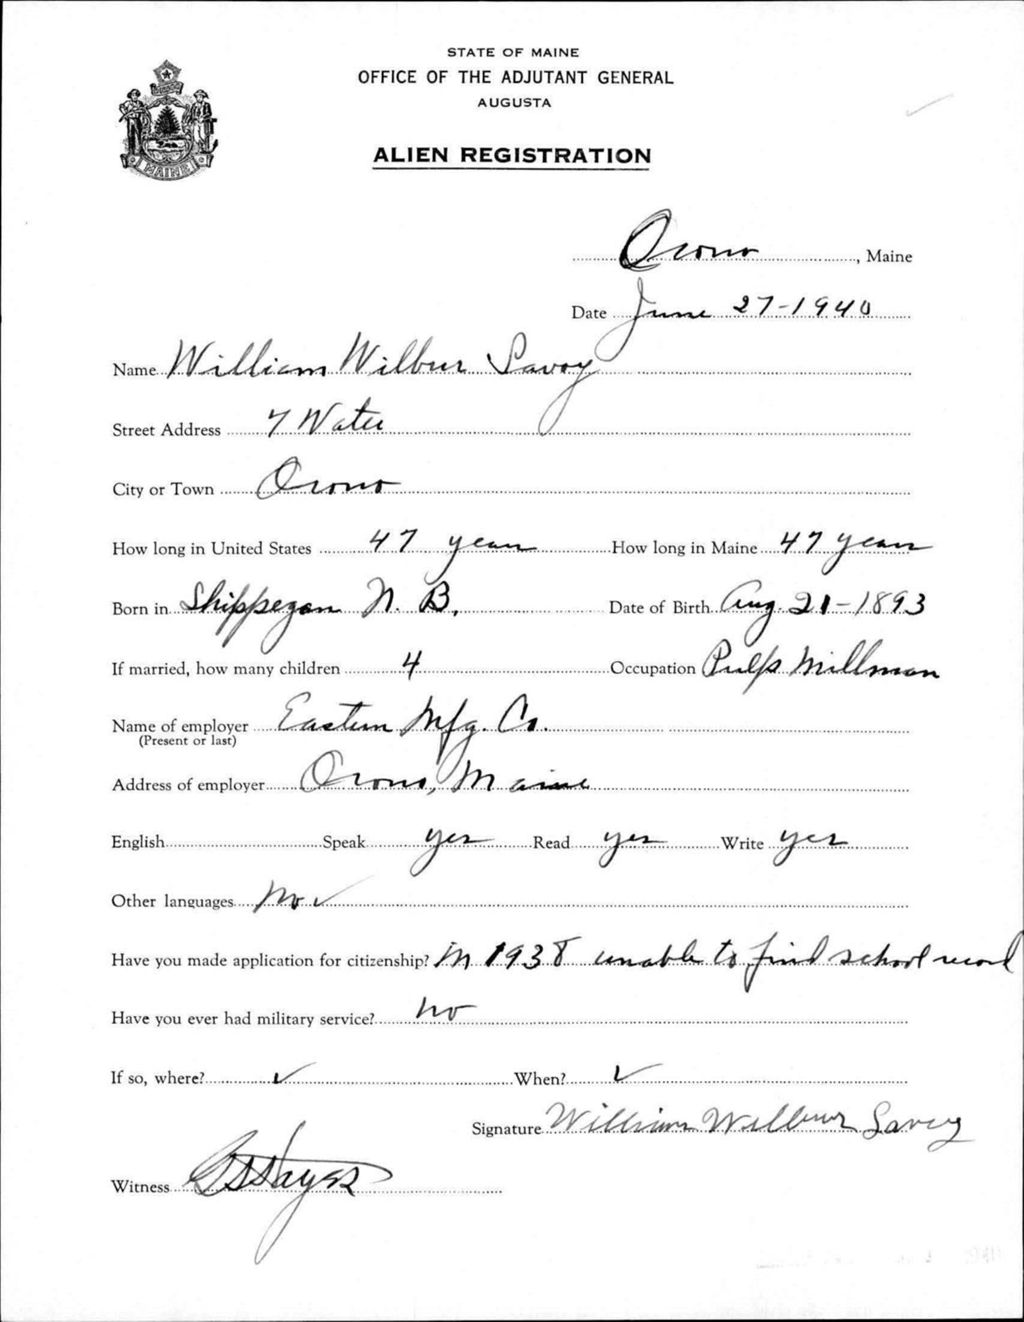 STATE OF MAINE
OFFICE OF THE ADJUTANT GENERAL
AUGUSTA
ALIEN REGISTRATION
MAINE
Orono, Maine
Date June 27-1940
Name William Wilbur Savoy
Street Address 7 Water
City or Town Orono
How long in United States 47 years How long in Maine 47 years
Born in Shippegan N. B. Date of Birth Aug. 21-1893
If married, how many children 4 Occupation Pulp Millman
Name of employer Eastern Mfg. Co.
(Present or last)
Address of employer Orono, Maine
English Speak yes Read yes Write yes
Other languages No ✓
Have you made application for citizenship? In 1938 unable to find school record
Have you ever had military service? no
If so, where? ✓ When? ✓
Signature William Wilbur Savoy
Witness